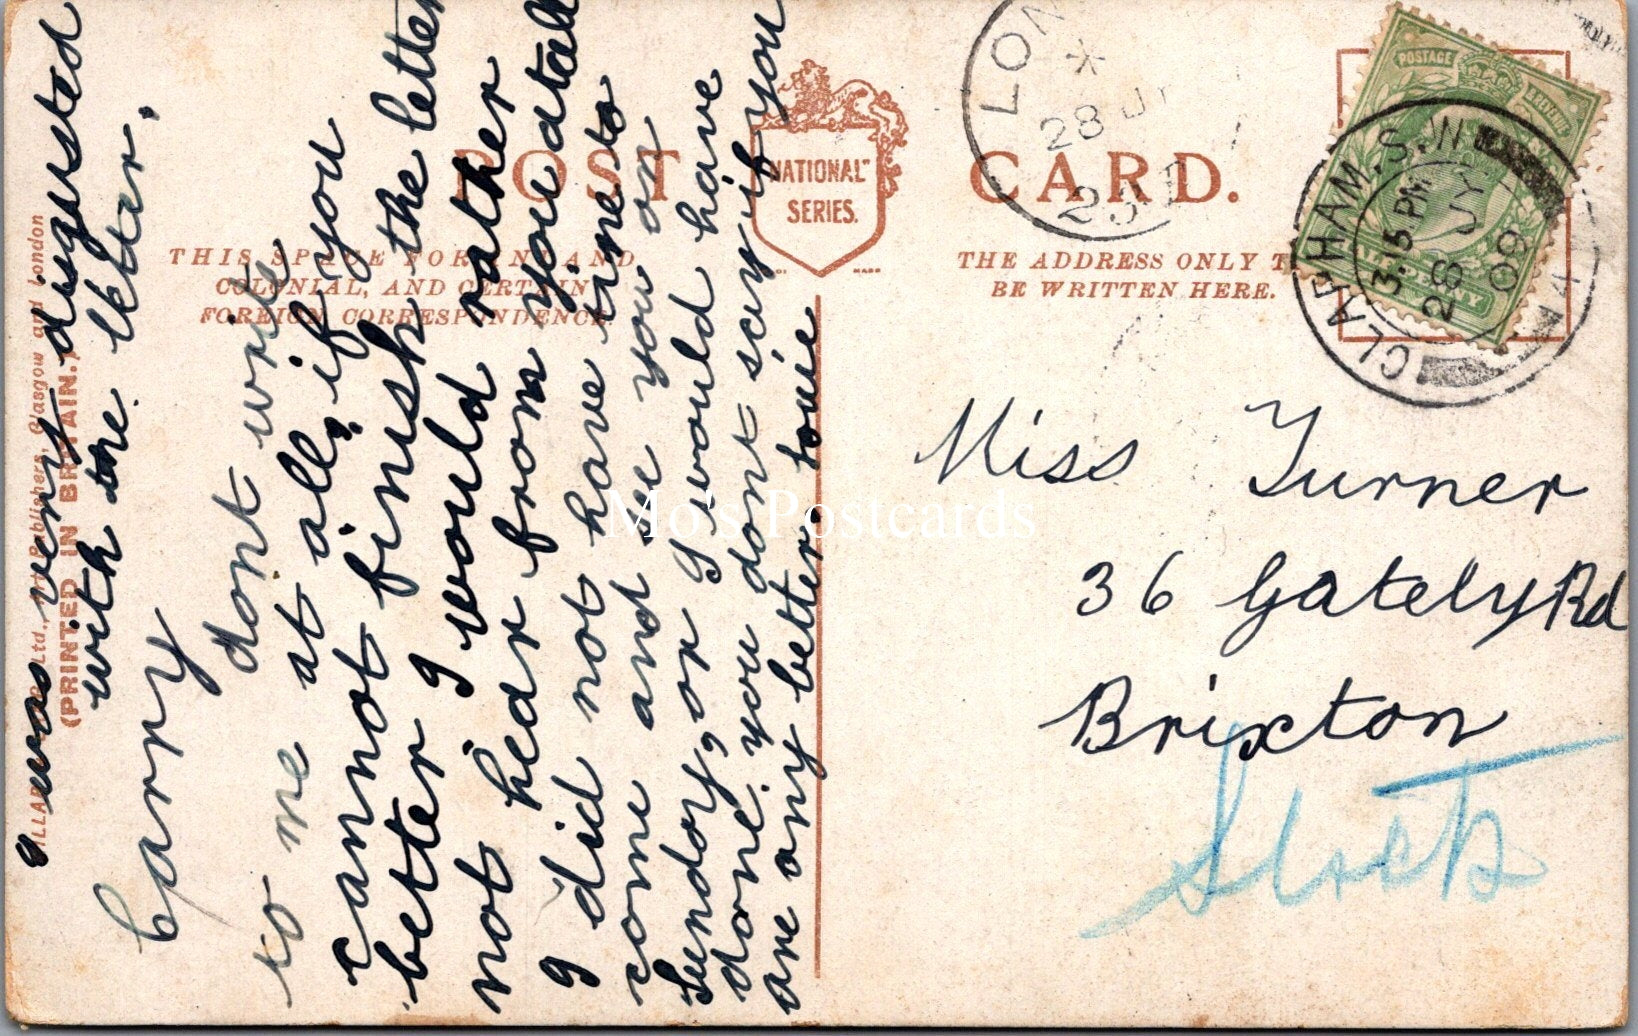 POST CARD.
"NATIONAL" SERIES.
THIS SPACE FOR INLAND
COLONIAL, AND CERTAIN
FOREIGN CORRESPONDENCE.
THE ADDRESS ONLY T
BE WRITTEN HERE.
POSTAGE
HALFPENNY
LON
28 JY
CLAPHAM. S.W.
3.15 PM
28 JY
09
Ltd., Art Publishers, Glasgow and London
(PRINTED IN BRITAIN.)
I was very disgusted
with the letter.
Carry
dont write
to me at all, if you
cannot finish the letter
better I would rather
not hear from you atall
I did not have time to
come and see you on
Sundory, or I would have
done. you dont say if you
are any better. love
Miss Turner
36 Gately Rd
Brixton
Mo's Postcards